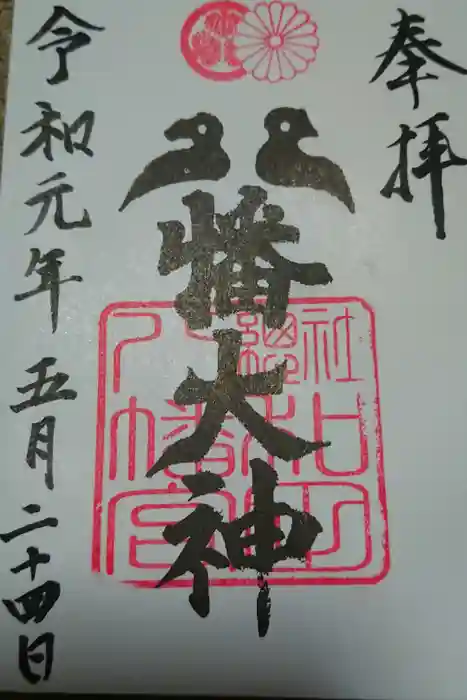 奉拝
八幡大神
令和元年五月二十四日